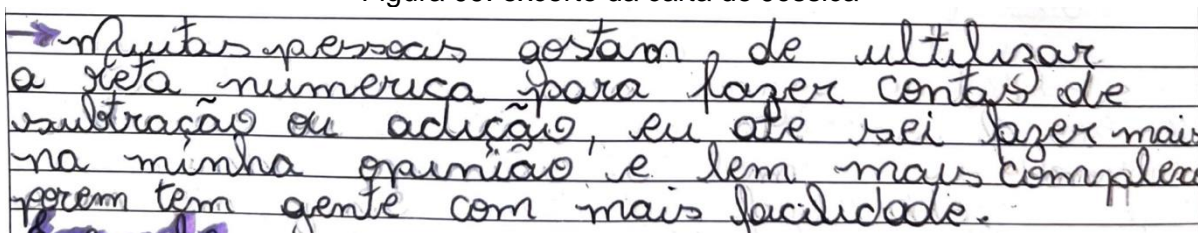 Muitas pessoas gostam de ultilizar
a reta numerica para fazer contas de
subtração ou adição, eu ate sei fazer mais
na minha opinião e bem mais complexo
porem tem gente com mais facilidade.